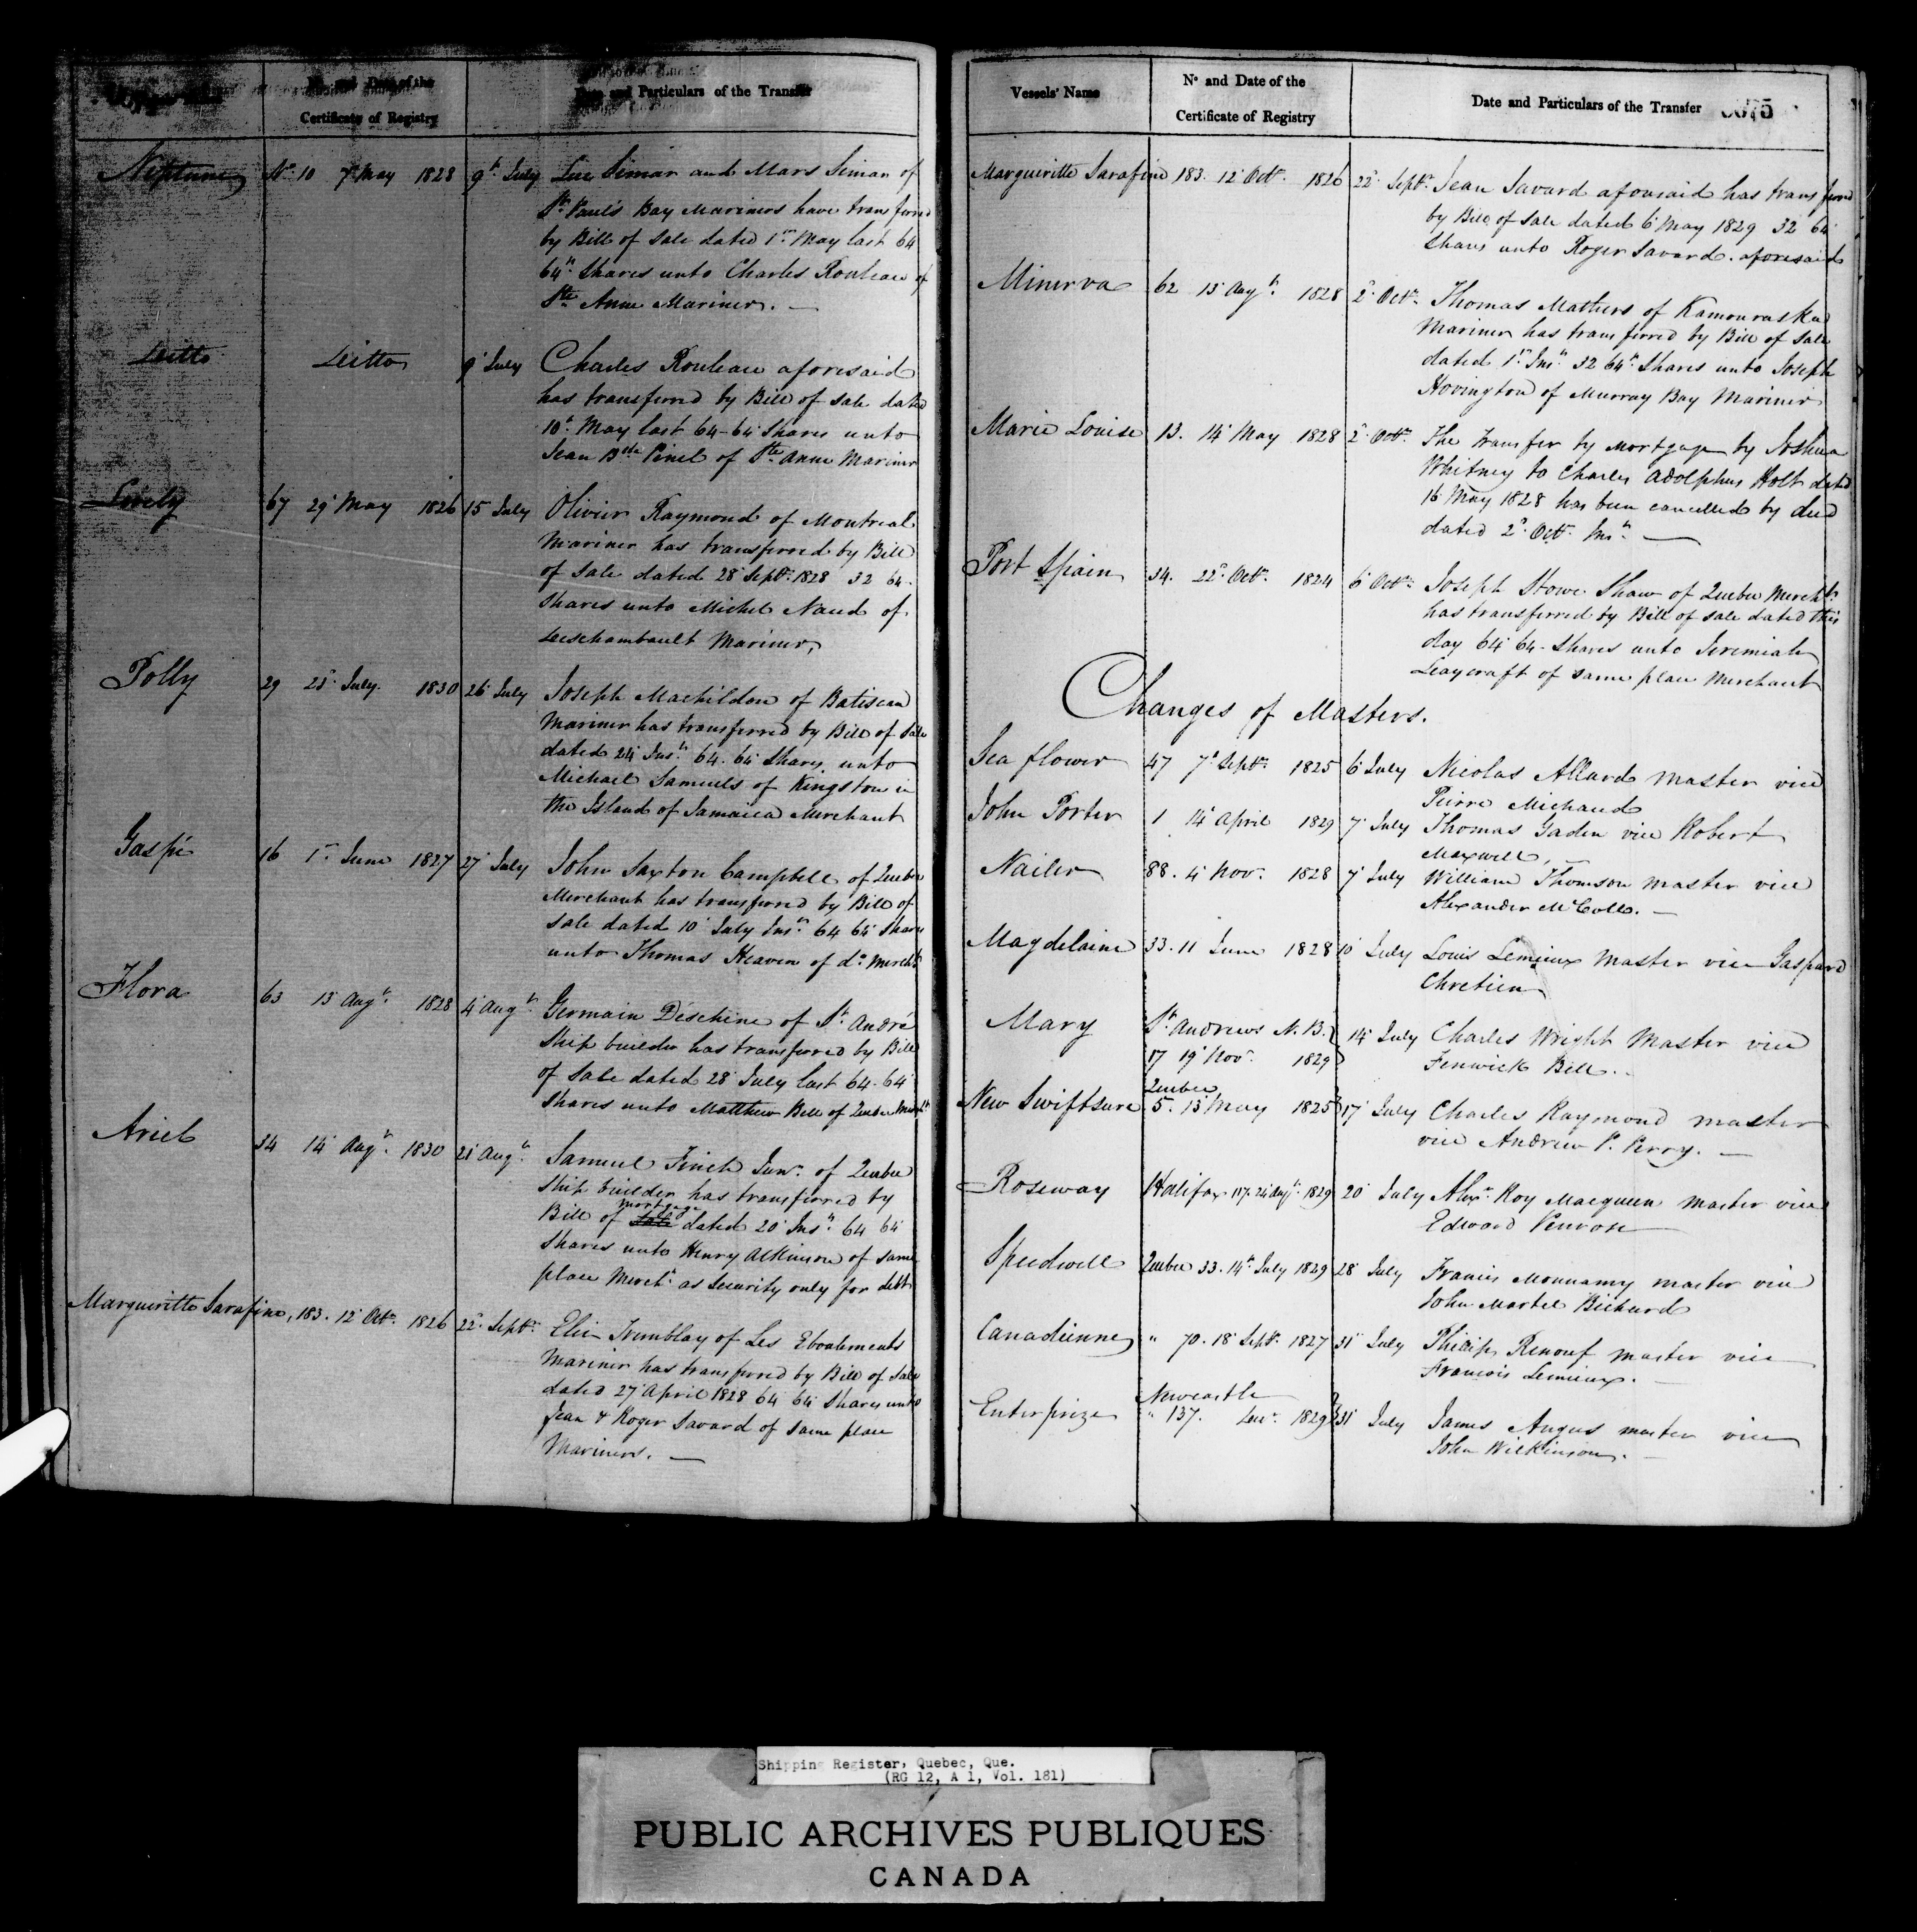 No. and Date of the
Certificate of Registry
Date and Particulars of the Transfer
Neptune No. 10 7 May 1828 9th July Luc Simar and Mars Simar of
St Paul's Bay Mariners have transferred
by Bill of Sale dated 1st May last 64
64th Shares unto Charles Rouleau of
Ste Anne Mariner. —
Ditto Ditto 9 July Charles Rouleau aforesaid
has transferred by Bill of Sale dated
10th May last 64-64 Shares unto
Jean Bte Pinel of Ste Anne Mariner
Lovely 67 29 May 1826 15 July Olivier Raymond of Montreal
Mariner has transferred by Bill
of Sale dated 28 Septr 1828 32 64.
Shares unto Michel Naud of
Deschambault Mariner,
Polly 29 23 July. 1830 26 July Joseph Machildon of Batiscan
Mariner has transferred by Bill of Sale
dated 24 Inst 64. 64 Shares unto
Michael Samuels of Kingston in
the Island of Jamaica Merchant
Gaspé 16 1st June 1827 27 July John Saxton Campbell of Quebec
Merchant has transferred by Bill of
Sale dated 10 July Inst 64 64 Shares
unto Thomas Heaven of do Mercht
Flora 63 13 Augt. 1828 4 Augt Germain Déschène of St André
Ship builder has transferred by Bill
of Sale dated 28 July last 64-64
Shares unto Matthew Bell of Quebec Mercht
Ariel 34 14 Augt. 1830 21 Augt. Samuel Finch Junr. of Quebec
Ship builder has transferred by
Bill of Sale mortgage dated 20 Inst 64 64
Shares unto Henry Atkinson of same
place Mercht as Security only for debt
Margueritte Sarafine, 183. 12 Octr. 1826 22 Septr. Elie Tremblay of Les Eboulements
Mariner has transferred by Bill of Sale
dated 27 April 1828 64 64 Shares unto
Jean & Roger Savard of same place
Mariners. —
Vessels' Name
No and Date of the
Certificate of Registry
Date and Particulars of the Transfer 0075
Margueritte Sarafine 183. 12 Octr. 1826 22 Septr. Jean Savard aforesaid has transferred
by Bill of Sale dated 6 May 1829 32 64
Shares unto Roger Savard. aforesaid
Minerva 62 13 Augt. 1828 2 Octr. Thomas Mathers of Kamouraska
Mariner has transferred by Bill of Sale
dated 1st Inst 32 64th Shares unto Joseph
Hovington of Murray Bay Mariner
Marie Louise 13. 14 May 1828 2 Octr. The Transfer by Mortgage by Joshua
Whitney to Charles Adolphus Holt dated
16 May 1828 has been cancelled by deed
dated 2 Octr. Inst. —
Port Spain 34. 22 Octr. 1824 6 Octr. Joseph Stowe Shaw of Quebec Mercht.
has transferred by Bill of Sale dated this
day 64 64- Shares unto Jeremiah
Leaycraft of same place Merchant
Changes of Masters.
Sea flower 47 7 Septr. 1825 6 July Nicolas Allard Master vice
Pierre Michaud
John Porter 1 14 April 1829 7 July Thomas Gaden vice Robert
Maxwell, —
Nailer 88. 4 Novr. 1828 7 July William Thomson Master vice
Alexander McColl. —
Magdelaine 33. 11 June 1828 10 July Louis Lemieux Master vice Gaspard
Chretien
Mary St Andrews N.B. 14 July Charles Wright Master vice
17 19 Novr. 1829 Fenwick Bell. -
Quebec
New Swiftsure 5. 13 May 1825 17 July Charles Raymond master
vice Andrew P. Perry. —
Roseway Halifax 117. 24 Augt. 1829 20 July Alexr. Roy Macqueen Master vice
Edward Penrose
Speedwell Quebec 33. 14th July 1829 28 July Francis Mounamy master vice
John Martel Bichard
Canadienne " 70. 18 Septr. 1827 31 July Philip Renouf master vice
Francois Lemieux. —
Newcastle
Enterprize " 137. Decr. 1829 31 July James Angus master vice
John Wilkinson. —
Shipping Register, Quebec, Que.
(RG 12, A 1, Vol. 181)
PUBLIC ARCHIVES PUBLIQUES
CANADA